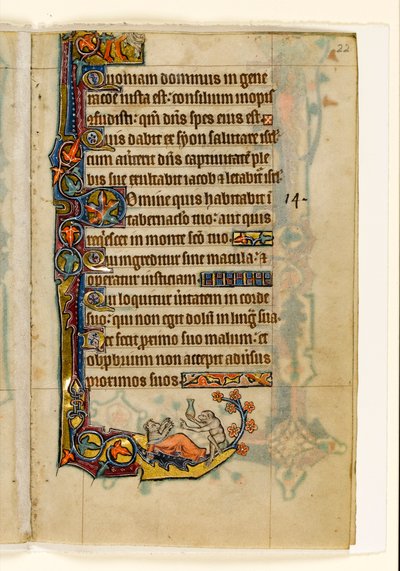 22
Quoniam dominus in gene
racōe iusta est: consilium inopis
ꝯfudisti: qm̄ dn̄s spes eius est
Quis dabit ex syon salutare isrl̄:
cum auerterit dn̄s captiuitatē ple
bis sue exultabit iacob & letabit̄ isrl̄.
Domine quis habitabit i
14-
tabernaclo tuo: aut quis
req̄escet in monte sc̄o tuo
Qui ingreditur sine macula: &
operatur iusticiam.
Qui loquitur ūitatem in corde
suo: qui non egit dolū in lingua sua.
Nec fecit ꝓximo suo malum: et
obprbrium non accepit aduīsus
proximos suos